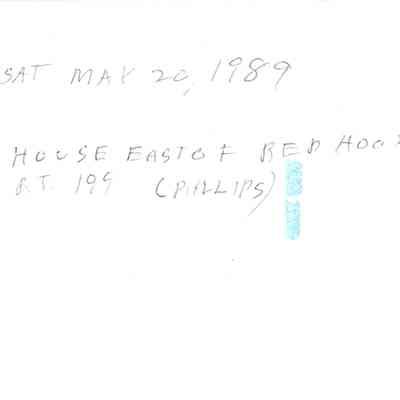 SAT MAY 20, 1989
HOUSE EAST OF RED HOOK
RT. 199 (PHILLIPS)